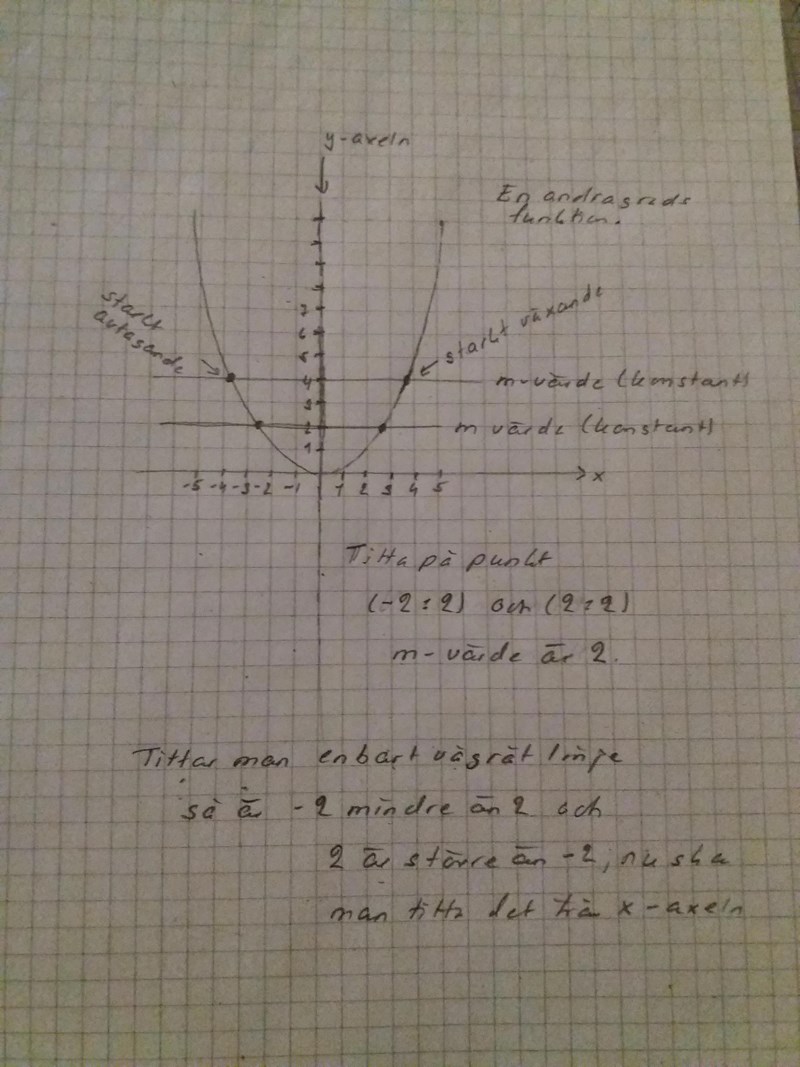 y-axeln
En andragrads
funktion.
7
6
5
4
3
2
1
starkt
avtagande
starkt växande
m-värde (konstant)
m värde (konstant)
-5 -4 -3 -2 -1 1 2 3 4 5 x
Titta på punkt
(-2:2) och (2:2)
m-värde är 2.
Tittar man enbart vågrät linje
så är -2 mindre än 2 och
2 är större än -2, nu ska
man titta det från x-axeln